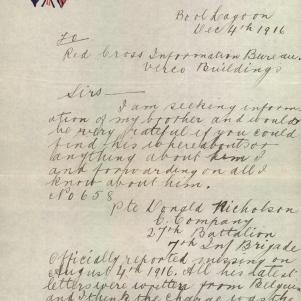 Bool Lagoon
Dec 4th 1916
To
Red Cross Information Bureau.
Verco Buildings
Sirs
I am seeking inform
ation of my brother and would
be very grateful if you could
find his whereabouts or
anything about him I
am forwarding on all I
know about him.
No 658
Pte Donald Nicholson
C. Company
27th Battalion
7th Inf Brigade
Officially reported missing on
August 4th 1916. All his latest
letters were written from Belgium
and I think the charge was the